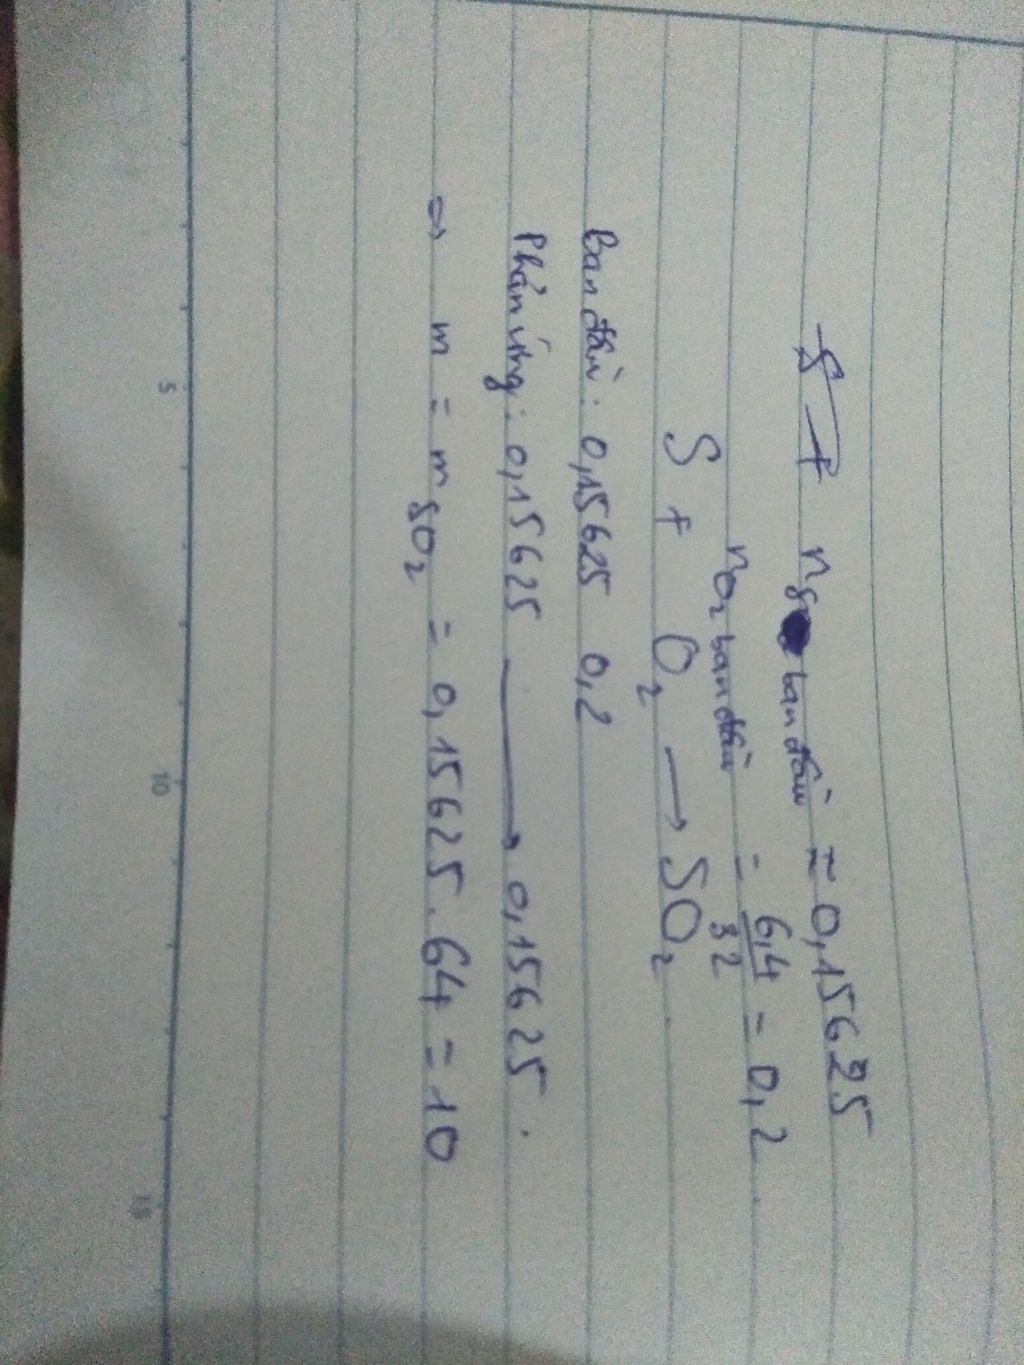 n_S ban đầu = 0,15625
n_O₂ ban đầu = 6,4/32 = 0,2
S + O₂ → SO₂
Ban đầu: 0,15625 0,2
Phản ứng: 0,15625 → 0,15625.
⇒ m = m_SO₂ = 0,15625.64 = 10
5 10 15